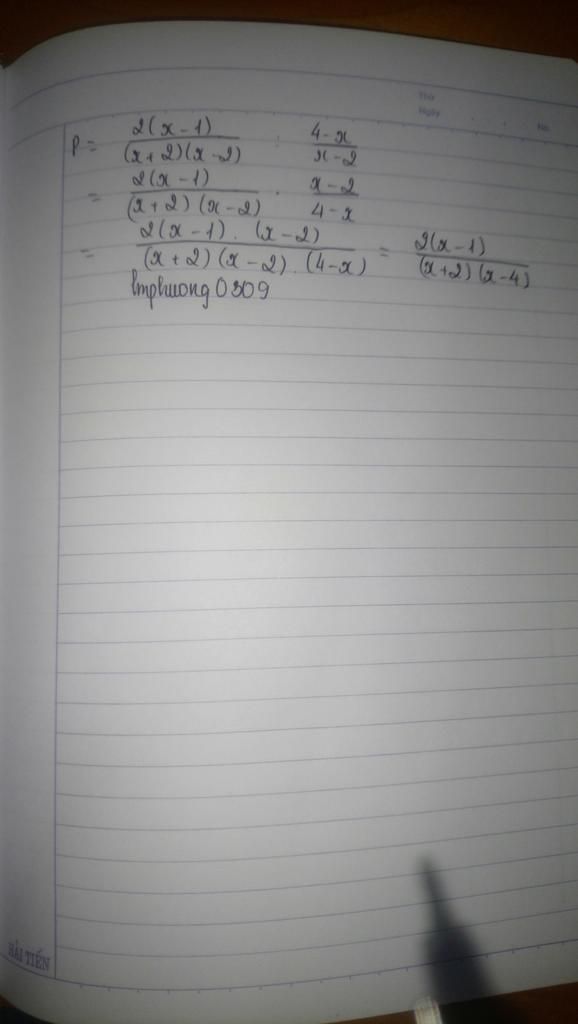 Thứ
Ngày No.
P = \frac{2(x-1)}{(x+2)(x-2)} : \frac{4-x}{x-2}
= \frac{2(x-1)}{(x+2)(x-2)} . \frac{x-2}{4-x}
= \frac{2(x-1).(x-2)}{(x+2)(x-2).(4-x)} = \frac{2(x-1)}{(x+2)(x-4)}
lmphuong0309
HẢI TIẾN